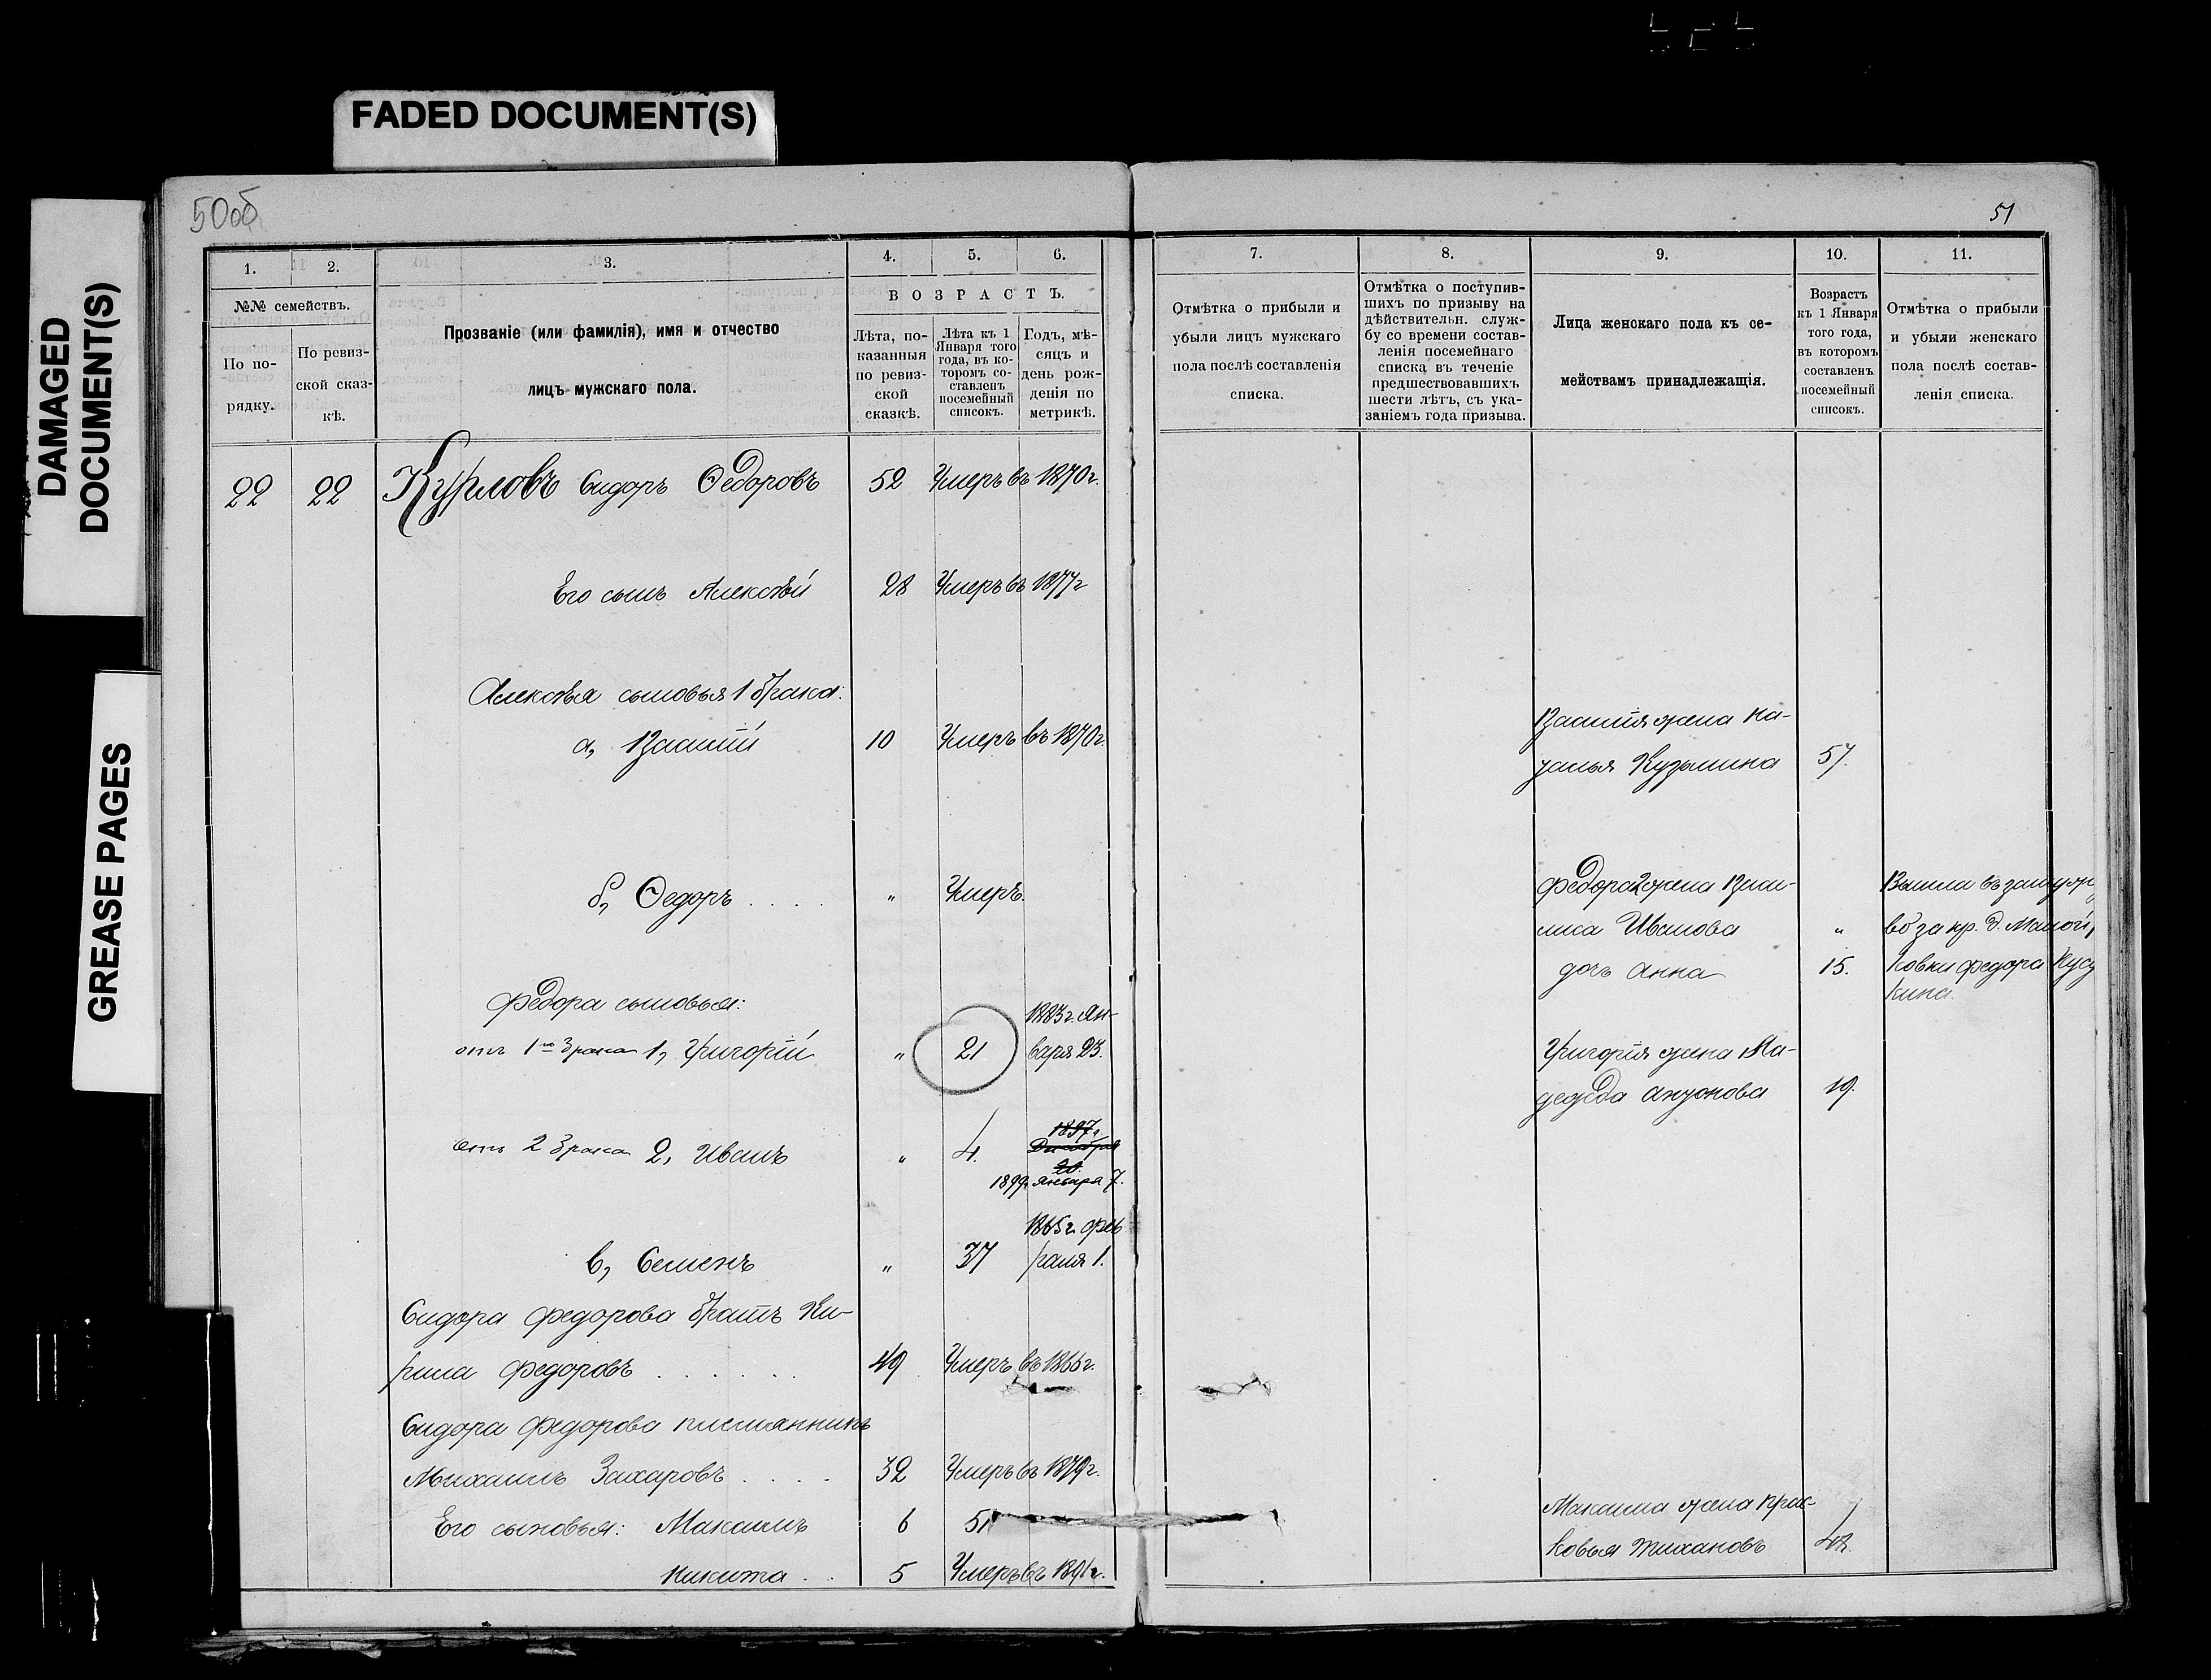 FADED DOCUMENT(S)
DAMAGED
DOCUMENT(S)
GREASE PAGES
50об
1.
2.
3.
4.
5.
6.
№№ семействъ.
По по-
рядку.
По ревиз-
ской сказ-
кѣ.
Прозваніе (или фамилія), имя и отчество
лицъ мужскаго пола.
ВОЗРАСТЪ.
Лѣта, по-
казанныя
по ревиз-
ской
сказкѣ.
Лѣта къ 1
Января того
года, въ ко-
торомъ со-
ставленъ
посемейный
списокъ.
Годъ, мѣ-
сяцъ и
день рож-
денія по
метрикѣ.
22 22 Курловъ Сидоръ Ѳедоровъ 52 Умеръ въ 1870 г.
Его сынъ Алексѣй 28 Умеръ въ 1877 г
Алексѣя сыновья 1 брака:
а, Василій 10 Умеръ въ 1870 г.
б, Ѳедоръ . . . . " Умеръ.
Федора сыновья:
отъ 1го брака 1, Григорій " 21 1883 г. Ян-
варя 23.
отъ 2 брака 2, Иванъ " 4. 1897 г.
Декабря
20.
1899 г. Января 7.
в, Семенъ " 37 1865 г. Фев
раля 1.
Сидора Федорова братъ Ки-
рила Федоровъ . . . . . . 49 Умеръ въ 1866 г.
Сидора Федорова племянникъ
Михаилъ Захаровъ . . . . 32 Умеръ въ 1879 г.
Его сыновья: Максимъ 6 51
Никита . . 5 Умеръ въ 1891 г.
51
7.
8.
9.
10.
11.
Отмѣтка о прибыли и
убыли лицъ мужскаго
пола послѣ составленія
списка.
Отмѣтка о поступив-
шихъ по призыву на
дѣйствительн. служ-
бу со времени состав-
ленія посемейнаго
списка въ теченіе
предшествовавшихъ
шести лѣтъ, съ ука-
заніемъ года призыва.
Лица женскаго пола къ се-
мействамъ принадлежащія.
Возрастъ
къ 1 Января
того года,
въ которомъ
составленъ
посемейный
списокъ.
Отмѣтка о прибыли
и убыли женскаго
пола послѣ состав-
ленія списка.
Василія жена На-
талья Кузьмина 57.
Федора 2 жена Васи-
лиса Иванова " Вышла въ замуж
во за кр. д. Малой
дочь Анна 15. ковки Федора
кина.
Григорія жена На-
дежда Антонова 19.
Максима жена Прас-
ковья Тиханова 48.